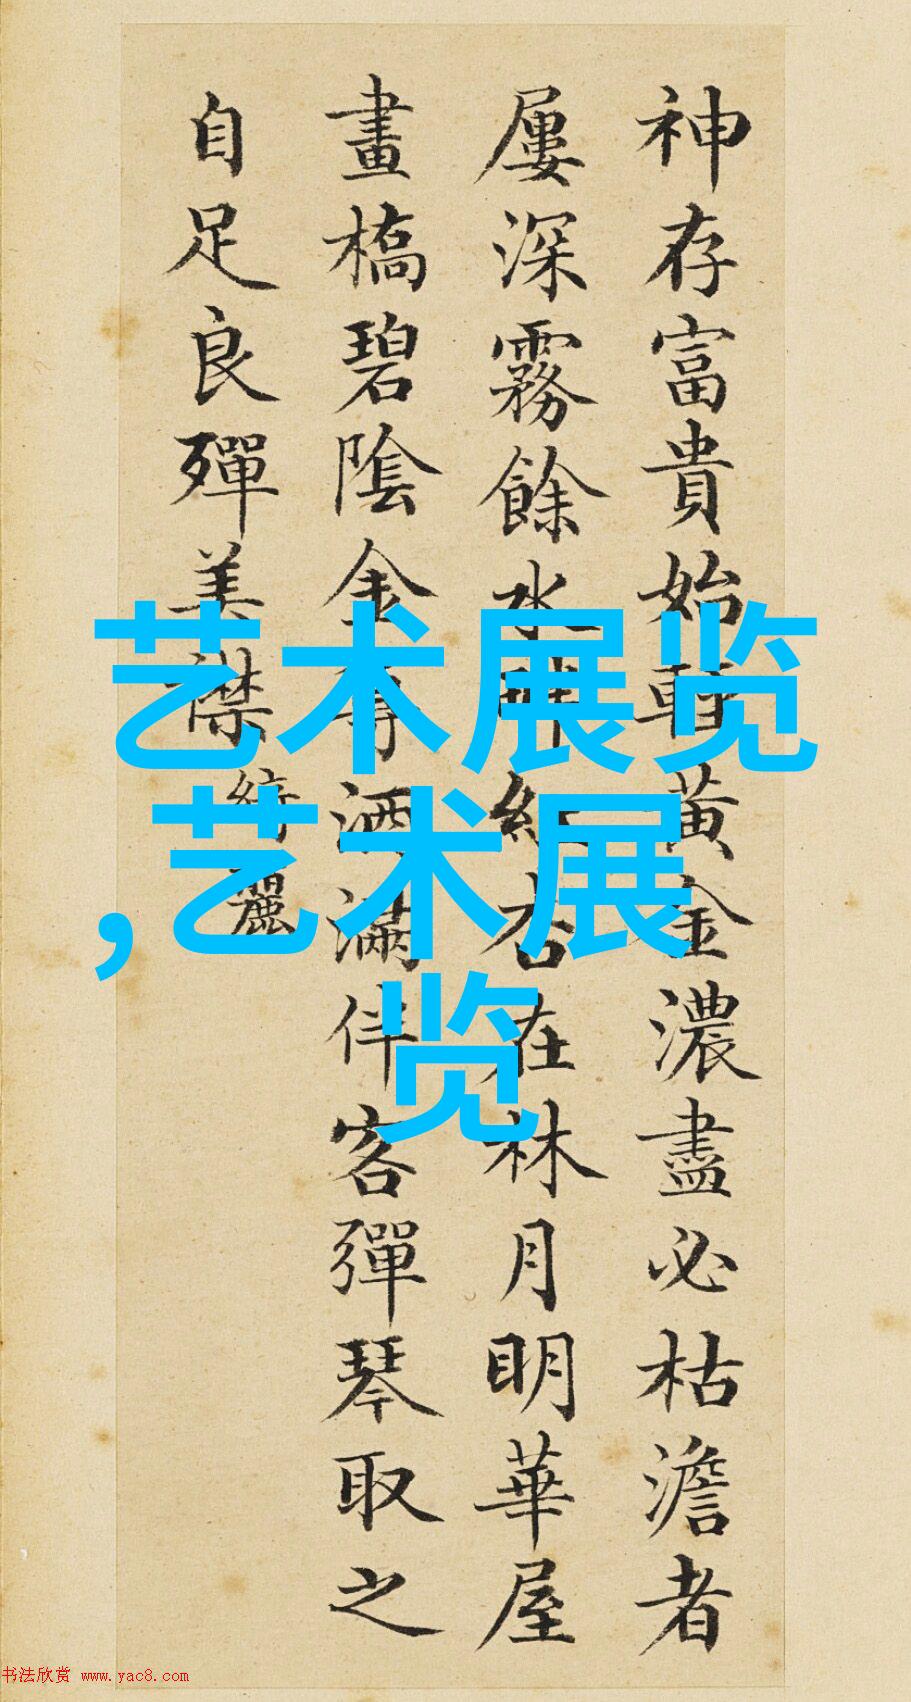 神存富貴始輕黃金濃盡必枯澹者
屢深霧餘水畔紅杏在林月明華屋
畫橋碧陰金尊酒滿伴客彈琴取之
自足良殫美襟
綺麗
艺术展览
,艺术展
览
书法欣赏 www.yac8.com